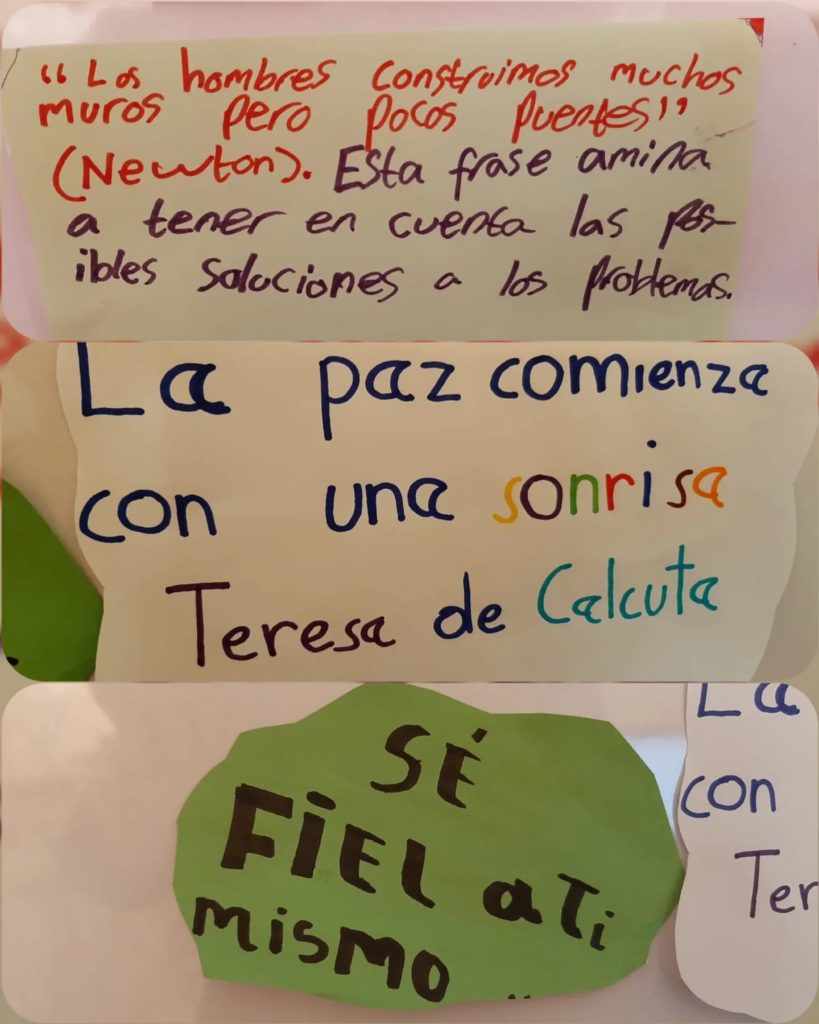 “Los hombres construimos muchos
muros pero pocos puentes”
(Newton). Esta frase amina
a tener en cuenta las pos-
ibles soluciones a los problemas.
La paz comienza
con una sonrisa
Teresa de Calcuta
SÉ
FiEL a Ti
mismo
La
con
Ter